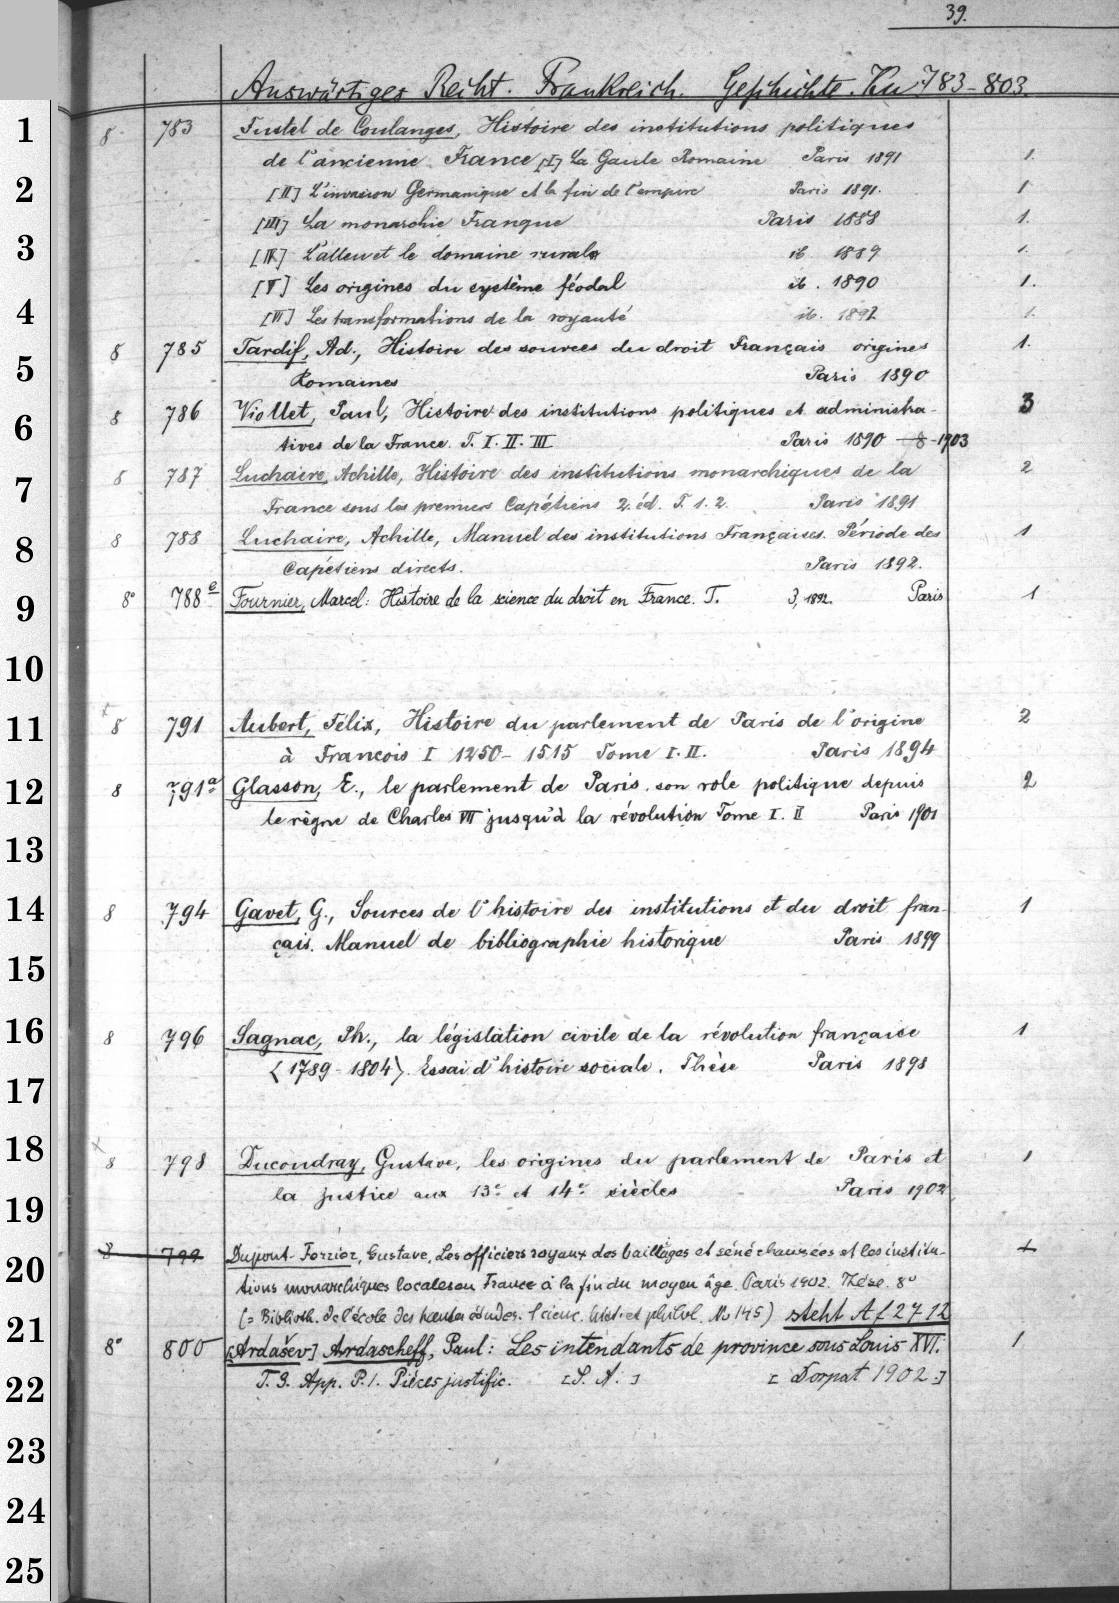 39.
Auswärtiges Recht. Frankreich. Geschichte. Ku 783-803.
1 8 783 Fustel de Coulanges, Histoire des institutions politiques
de l'ancienne France [I] La Gaule Romaine Paris 1891 1.
2 [II] L'invasion Germanique et la fin de l'empire Paris 1891. 1
[III] La monarchie Franque Paris 1888 1.
3 [IV] L'alleu et le domaine rural ib. 1889 1.
[V] Les origines du système féodal ib. 1890 1.
4 [VI] Les transformations de la royauté ib. 1892 1.
5 8 785 Tardif, Ad., Histoire des sources du droit Français origines 1.
Romaines Paris 1890
6 8 786 Viollet, Paul, Histoire des institutions politiques et administra- 3
tives de la France. T. I. II. III Paris 1890 - 8 - 1903
7 8 787 Luchaire, Achille, Histoire des institutions monarchiques de la 2
France sous les premiers Capétiens 2. éd. T. 1. 2. Paris 1891
8 8 788 Luchaire, Achille, Manuel des institutions Françaises. Période des 1
Capétiens directs. Paris 1892.
9 8° 788e Fournier, Marcel: Histoire de la science du droit en France. T. 3, 1892. Paris 1
10
11 8 791 Aubert, Félix, Histoire du parlement de Paris de l'origine 2
à François I 1250-1515 Tome I. II. Paris 1894
12 8 791a Glasson, E., le parlement de Paris, son role politique depuis 2
le règne de Charles VII jusqu'à la révolution Tome I. II Paris 1901
13
14 8 794 Gavet, G., Sources de l'histoire des institutions et du droit fran- 1
çais. Manuel de bibliographie historique Paris 1899
15
16 8 796 Sagnac, Ph., la législation civile de la révolution française 1
<1789-1804>. Essai d'histoire sociale. Thèse Paris 1898
17
18 x 8 798 Ducoudray, Gustave, les origines du parlement de Paris et 1
19 la justice aux 13e et 14e siècles Paris 1902
8 799 Dupont-Ferrier, Gustave, Les officiers royaux des bailliages et sénéchaussées et les institu- 1
20 tions monarchiques locales en France à la fin du moyen âge. Paris 1902. Thèse. 8°
(= Biblioth. de l'école des hautes études. Scienc. hist. et philol. No 145) steht Af 2712
21 8° 800 [Ardašev] Ardascheff, Paul: Les intendants de province sous Louis XVI. 1
22 T. 3. App. P. 1. Pièces justific. [S. A.] [Dorpat 1902.]
23
24
25